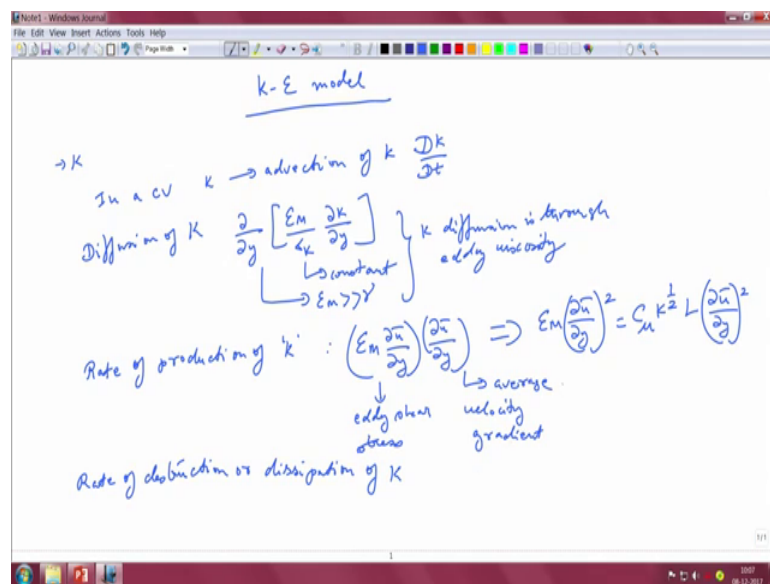 Note1 - Windows Journal
File Edit View Insert Actions Tools Help
Page Width
K-ε model
→ K
In a CV K → advection of K DK/Dt
Diffusion of K ∂/∂y [εM/σK ∂K/∂y] } K diffusion is through eddy viscosity
↳ constant
↳ εM >> γ
Rate of production of 'K' : (εM ∂ū/∂y)(∂ū/∂y) ⇒ εM(∂ū/∂y)² = Cμ K^½ L(∂ū/∂y)²
↓ eddy shear stress
↳ average velocity gradient
Rate of destruction or dissipation of K
1/1
1
10:07
08-12-2017